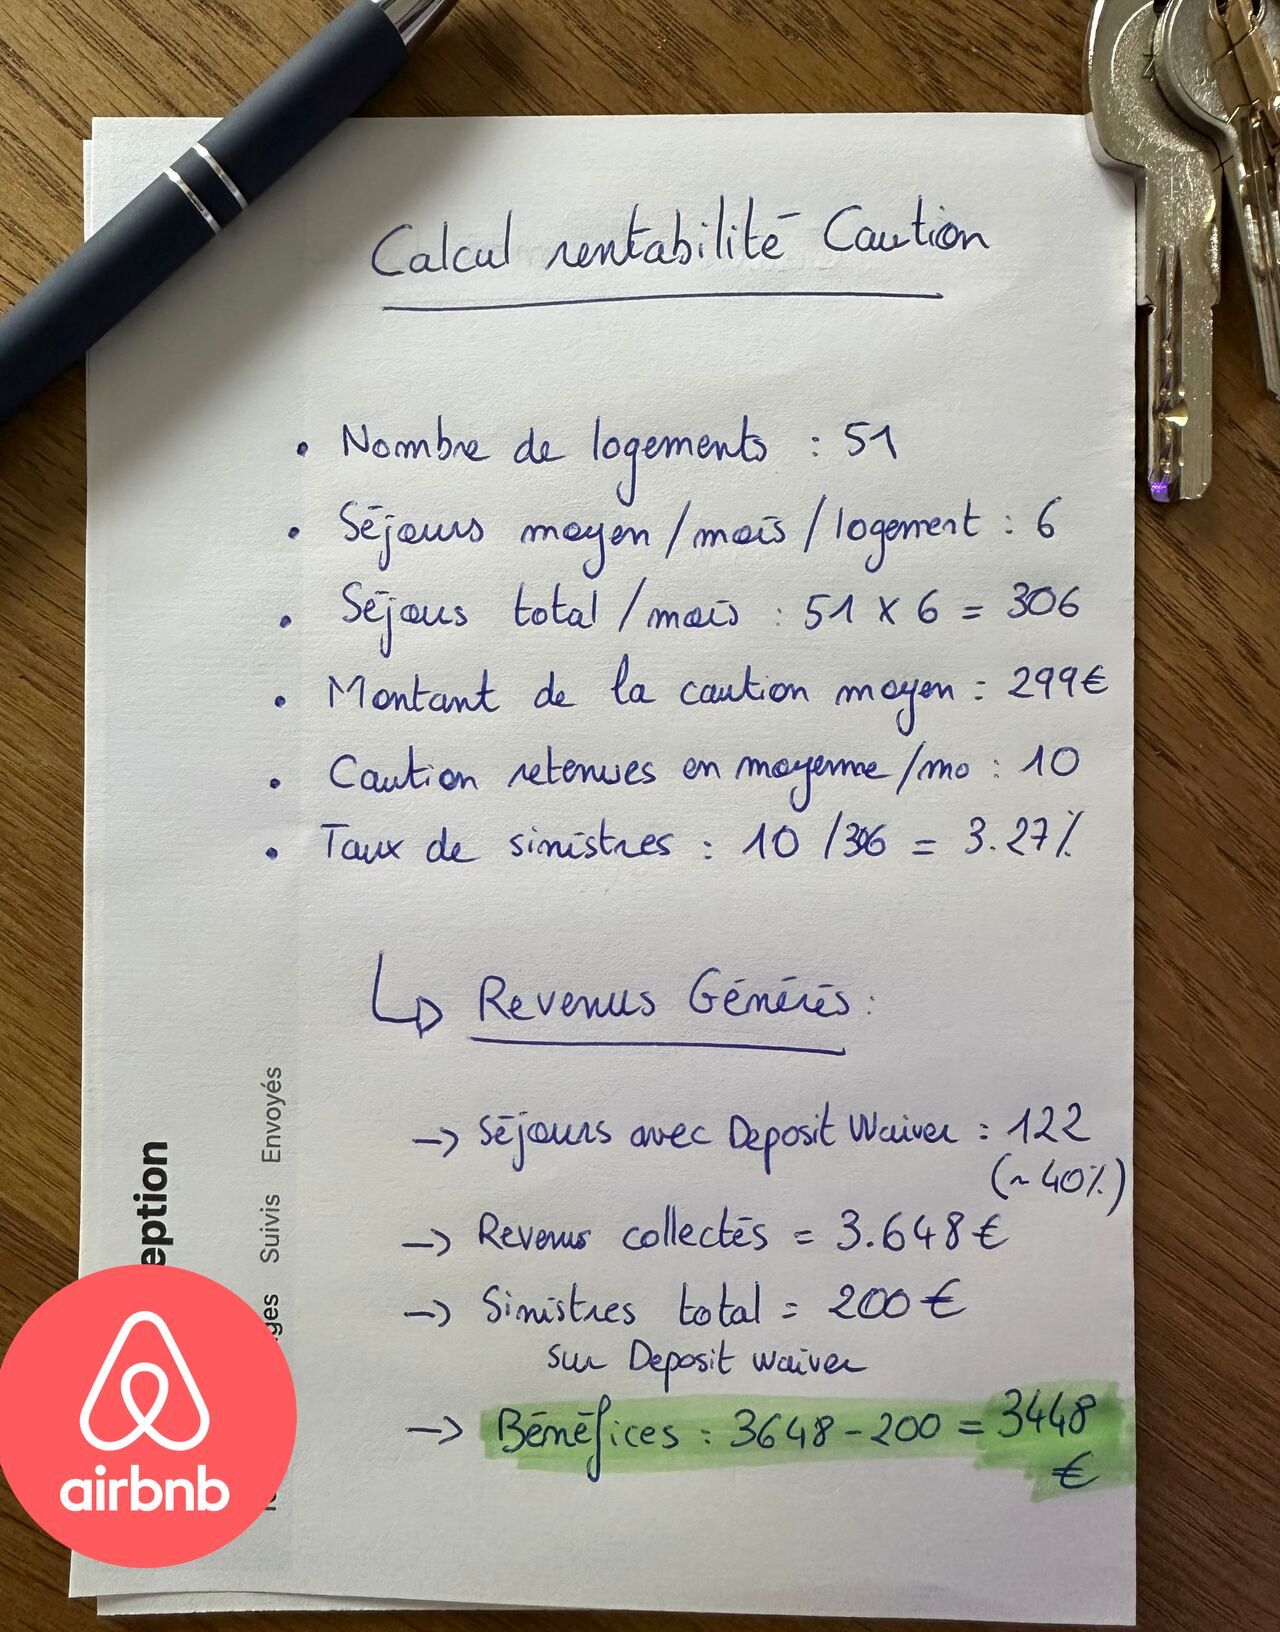 Calcul rentabilité Caution
• Nombre de logements : 51
• Séjours moyen/mois/logement : 6
• Séjous total/mois : 51 x 6 = 306
• Montant de la caution moyen : 299€
• Caution retenues en moyenne/mo : 10
• Taux de sinistres : 10/306 = 3.27%
↳ Revenus Générés :
→ Séjours avec Deposit Waiver : 122
(~40%)
→ Revenus collectés = 3.648€
→ Sinistres total = 200€
sur Deposit waiver
→ Bénéfices : 3648-200 = 3448
€
eption
ges Suivis Envoyés
airbnb